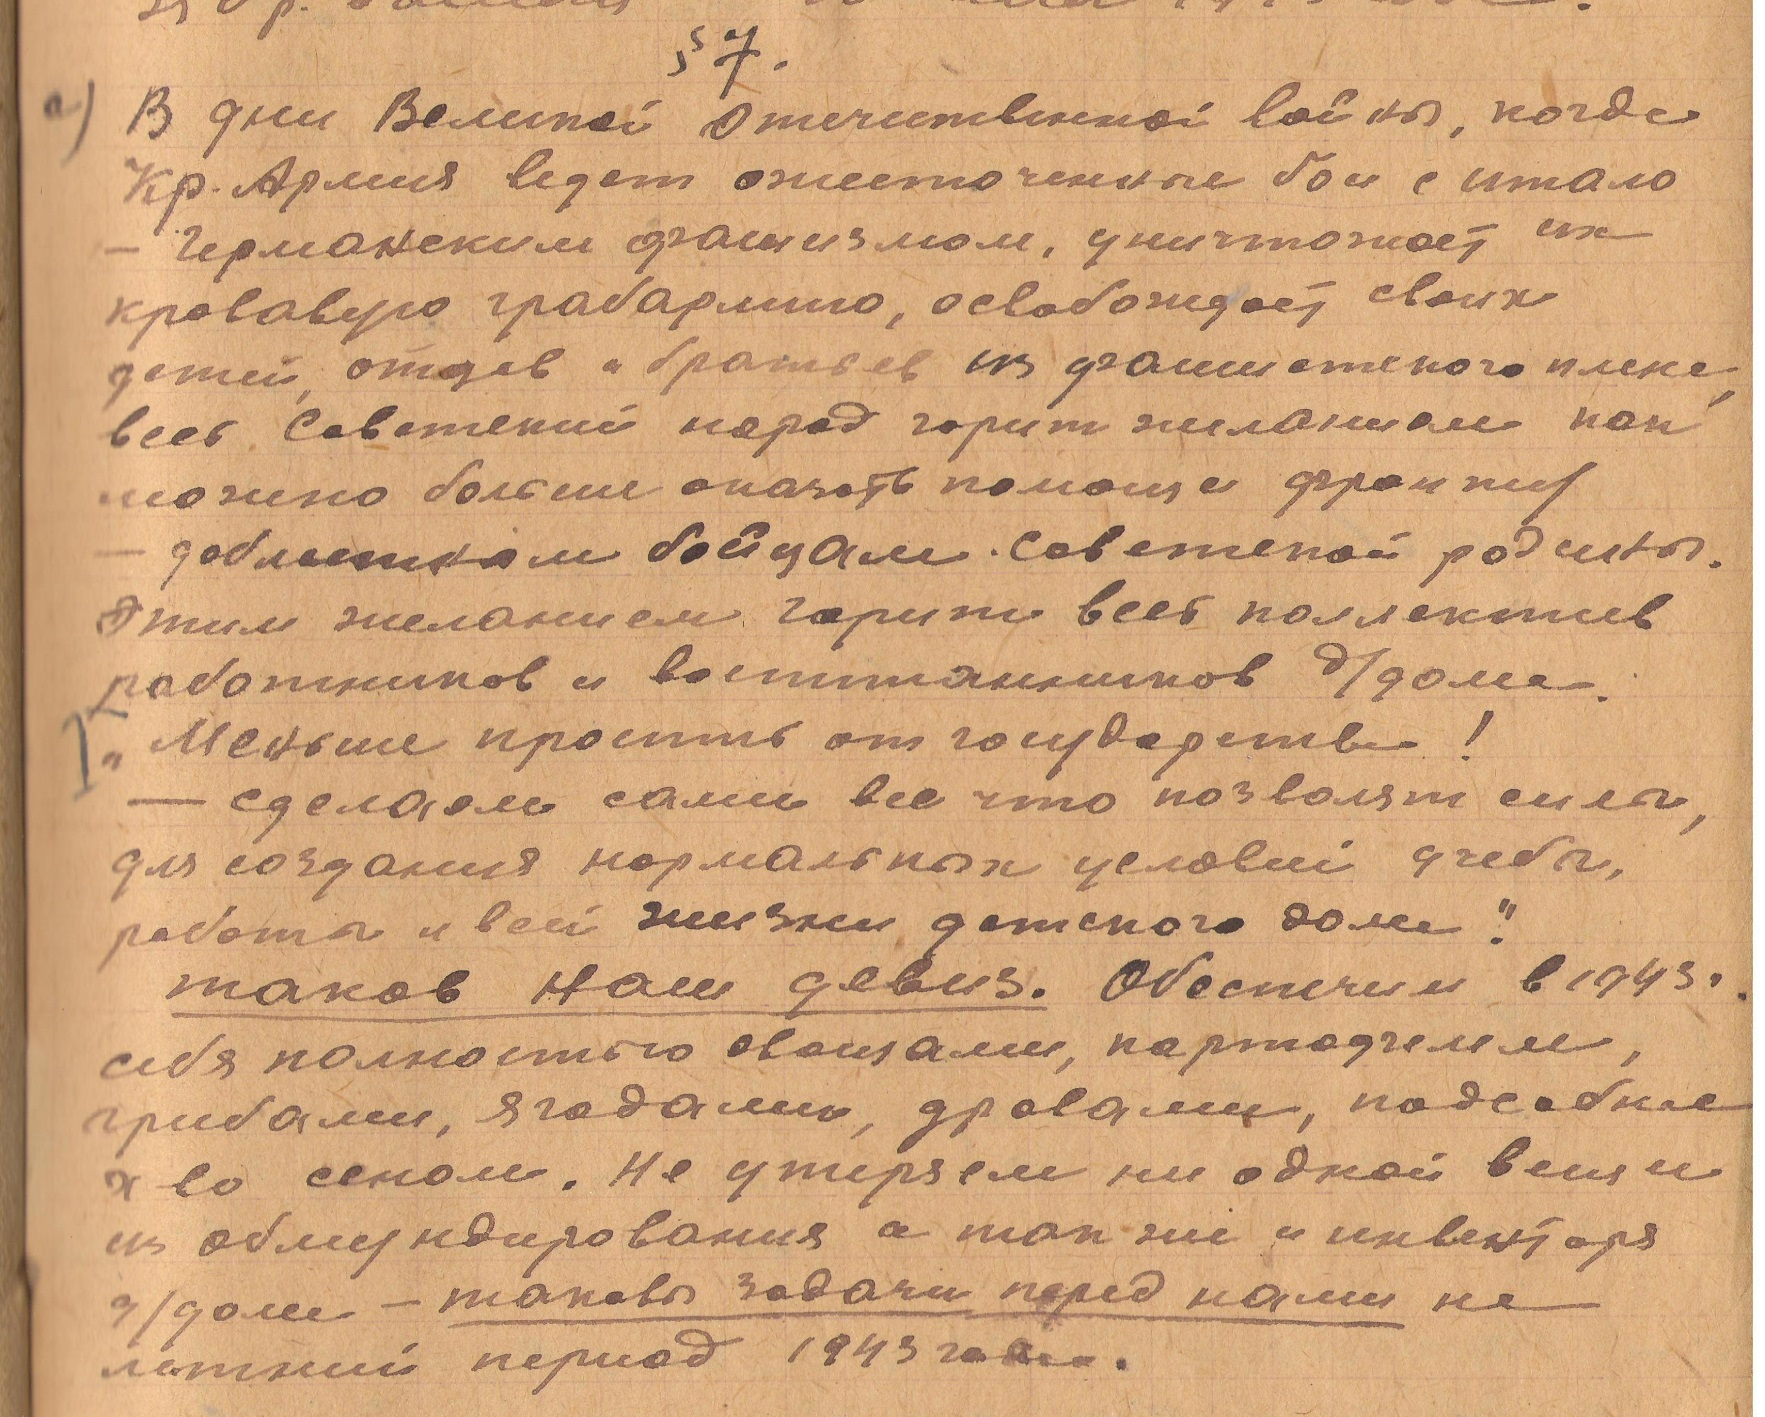 § 7.
а) В дни Великой Отечественной войны, когда
Кр. Армия ведет ожесточенные бои с итало
- Германским фашизмом, уничтожает их
кровавую грабармию, освобождает своих
детей, отцев и братьев из фашистского плена,
весь Советский народ горит желанием как
можно больше оказать помощи фронту
— доблестным бойцам Советской родины.
Этим желанием горит весь коллектив
работников и воспитанников д/дома.
„Меньше просить от государства!
— сделаем сами все что позволят силы,
для создания нормальных условий учебы,
работы и всей жизни детского дома"!
таков наш девиз. Обеспечим в 1943 г.
себя полностью овощами, картофелем,
грибами, ягодами, дровами, подсобное
х-во сеном. Не утеряем ни одной вещи
из обмундирования а так же и инвентаря
д/дома - таковы задачи перед нами на
летний период 1943 года.